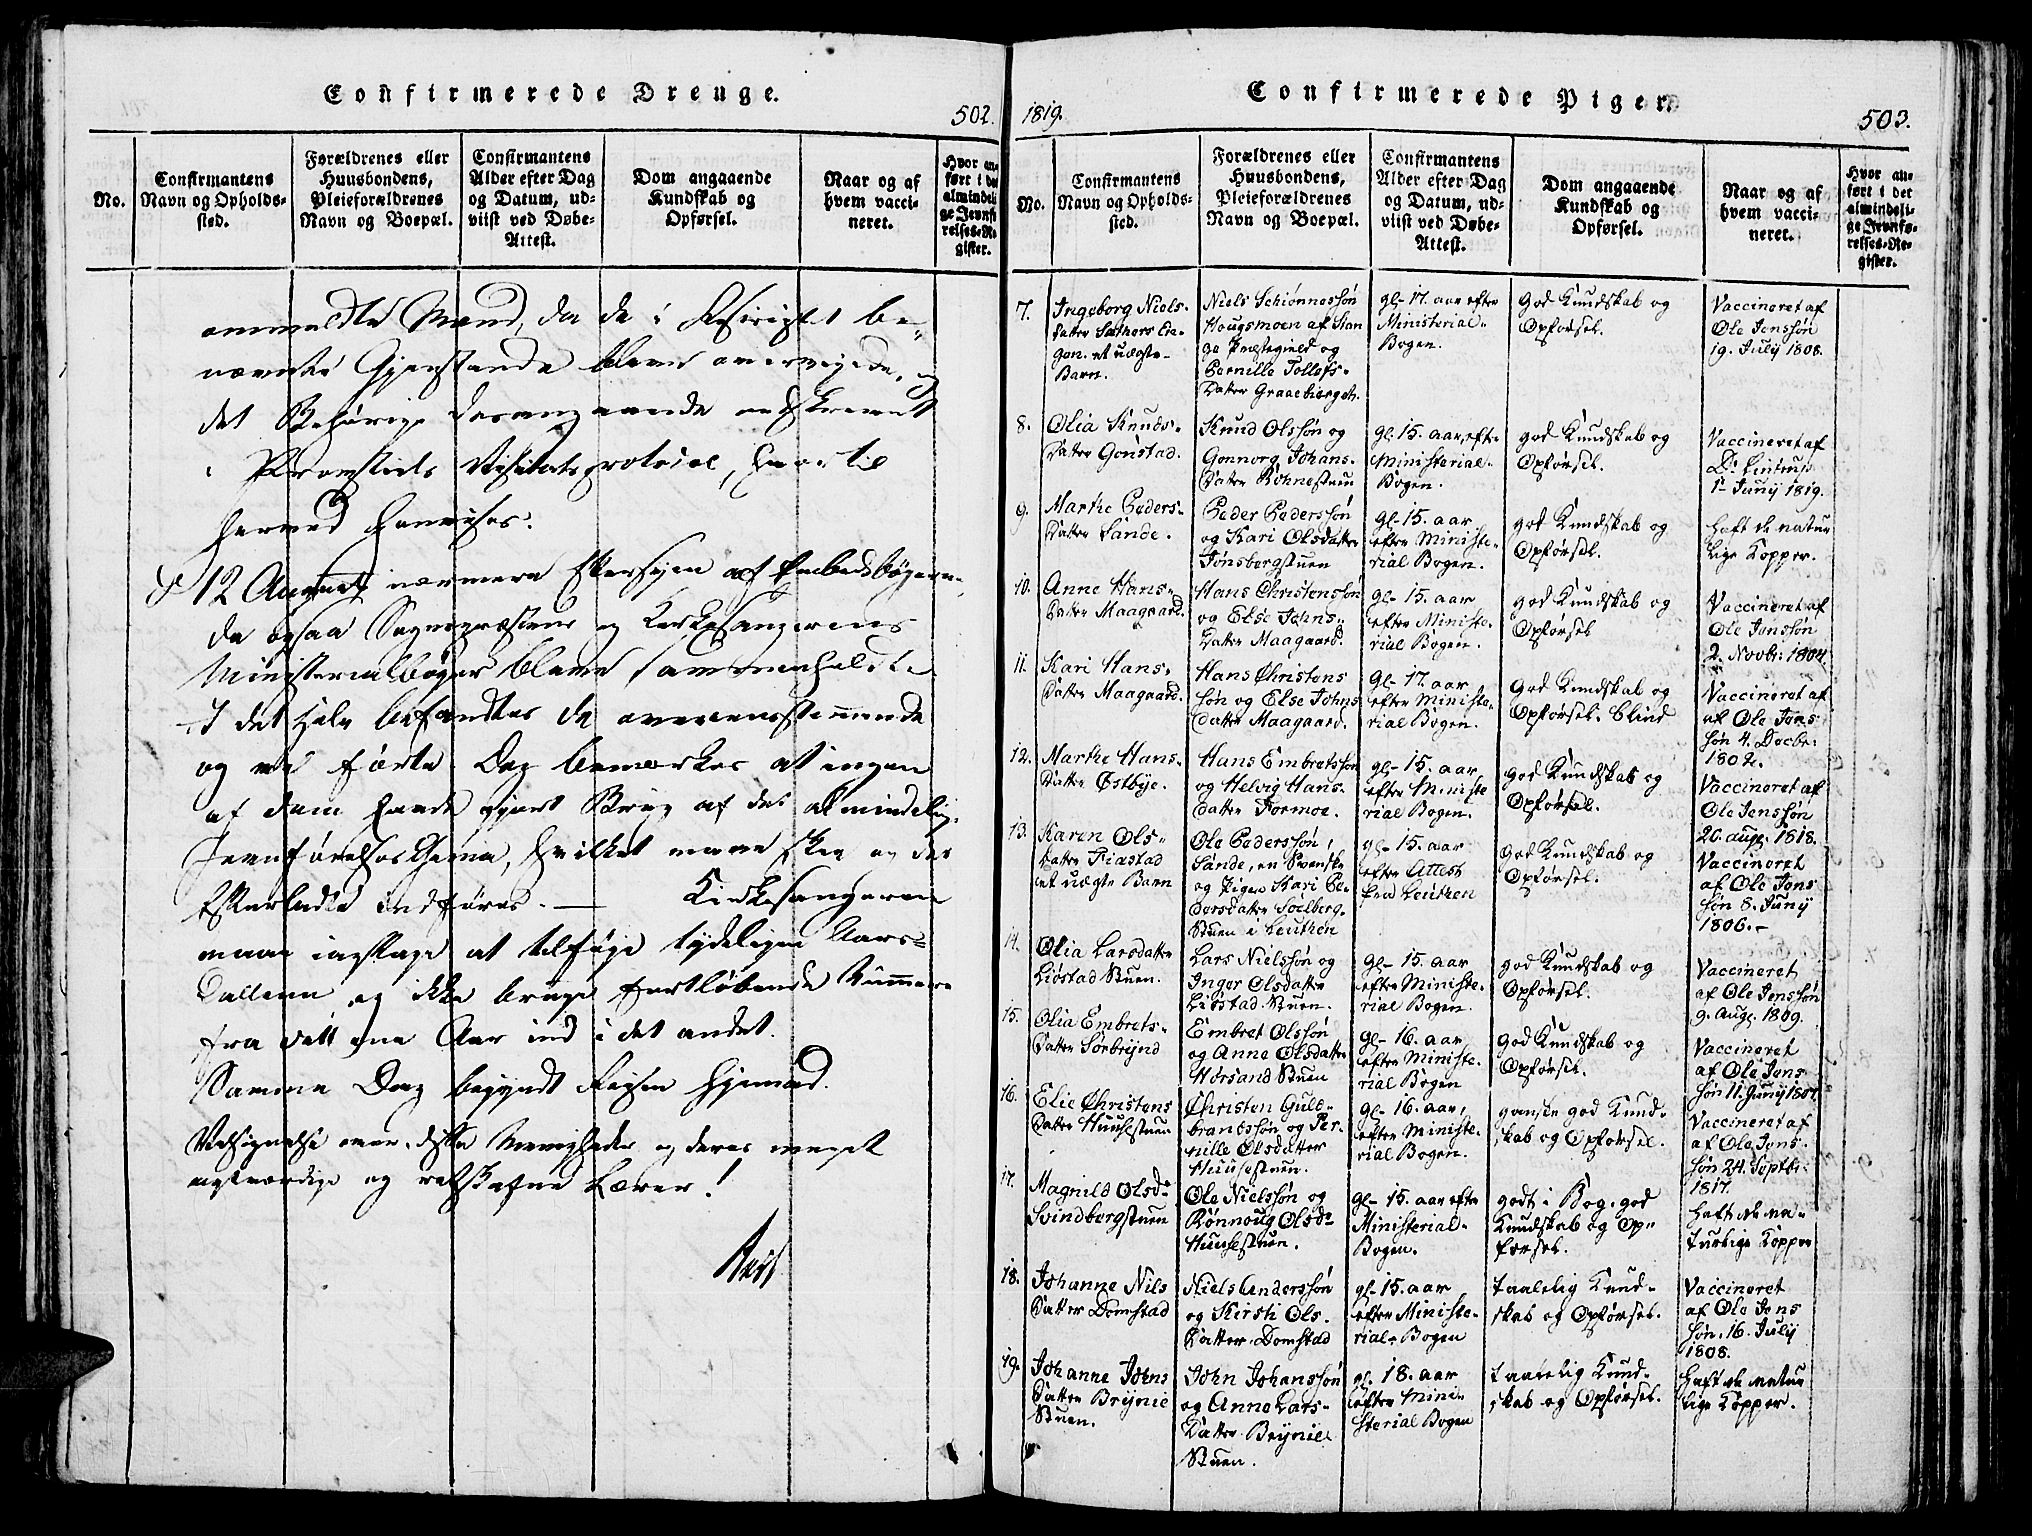 Confirmerede Drenge.
502.
No.
Confirmantens
Navn og Opholds-
sted.
Forældrenes eller
Huusbondens,
Pleieforældrenes
Navn og Boepæl.
Confirmantens
Alder efter Dag
og Datum, ud-
viist ved Døbe-
Attest.
Dom angaaende
Kundskab og
Opførsel.
Naar og af
hvem vacci-
neret.
Hvor an-
ført i det
almindeli-
ge Jevnfø-
relses-Re-
gister.
anmeldte Mænd, da de i Rescriptet be-
nævnte Gjenstande bleve overveyede, og
det Behørige desangaaende
i Provstiets Visitatsprotocol, hvortil
herved henvises.
d 12 August nærmere Eftersyn af Embedsbøgerne,
da ogsaa Sognepræstens og Kirkesangerens
Ministerialbøger bleve sammenholdte
I det Hele befandtes de overensstemmende
og vel førte. Dog bemærkes at ingen
af dem havde gjort Brug af det almindelig
Jevnførelses Schema, hvilket maae skee og det
Efterladte indføres. — Kirkesangeren
maae iagttage at tilføje tydeligen Aars-
Tallene og ikke bruge fortløbende Nummere
fra det ene Aar ind i det andet.
Samme Dag begyndt Reysen hjemad.
Velsignelse over disse Menigheder og deres meget
agtværdige og retskafne Lærer!
1819.
Confirmerede Piger.
503.
No.
Confirmantens
Navn og Opholds-
sted.
Forældrenes eller
Huusbondens,
Pleieforældrenes
Navn og Boepæl.
Confirmantens
Alder efter Dag
og Datum, ud-
viist ved Døbe-
Attest.
Dom angaaende
Kundskab og
Opførsel.
Naar og af
hvem vacci-
neret.
Hvor an-
ført i det
almindeli-
ge Jevnfø-
relses-Re-
gister.
7.
Ingeborg Niels-
Datter Sæthers Ene-
gen. et uægte
Barn.
Niels Schiønnessøn
Hougsmoen af Stan
ge Præstegield og
Pernille Tollofs-
Datter Graaebierget.
gl- 17. aar efter
Ministerial-
Bogen.
God Kundskab og
Opførsel.
Vaccineret af
Ole Jenssøn
19. July 1808.
8.
Olia Knuds-
Datter Gonstad.
Knud Olssøn og
Gonnorg Johans-
Datter Kohnestuen
gl. 15. aar, efter
Ministerial-
Bogen.
god Kundskab og
Opførsel.
Vaccineret af
Dr Pintrup
1- Juny 1819.
9.
Marthe Peders-
Datter Sande.
Peder Pederssøn
og Kari Olsdatter
Jønsbergstuen
gl- 15. aar
efter Ministe-
rial Bogen.
god Kundskab og
Opførsel.
haft de natur
lige Kopper.
10.
Anne Hans-
Datter Maagaard.
Hans Christenssøn
og Else Johns-
Datter Maagaard.
gl- 15. aar
efter Ministe-
rial Bogen.
god Kundskab og
Opførsel
Vaccineret af
Ole Jenssøn
2. Novbr: 1804.
11.
Kari Hans-
Datter Maagaard.
Hans Christens
søn og Else Johns
Datter Maagaard.
gl- 17. aar
efter Ministe-
rial Bogen.
God Kundskab og
Opførsel. blind
Vaccineret af
af Ole Jens-
søn 4. Decbr:
1802.
12.
Marthe Hans-
Datter Østbye.
Hans Embretssøn
og Helvig Hans-
datter Formoe.
gl- 15. aar
efter Ministe
rial Bogen.
god Kundskab og
Opførsel.
Vaccineret af
Ole Jenssøn
20. aug. 1818.
13.
Karen Ols-
Datter Fiastad
et uægte Barn
Ole Pederssøn,
Sande, en Svenske
og Pigen Kari Pe-
dersdatter Soelberg-
Stuen i Leuthen
gl- 15. aar
efter Attest
fra Leuthen
god Kundskab og
Opførsel.
Vaccineret
af Ole Jens
søn 8. Juny
1806.-
14.
Olia Larsdatter
Liøstad Stuen.
Lars Nielssøn og
Inger Olsdatter
Liøstad Stuen.
gl- 15. aar
efter Ministe-
rial Bogen.
god Kundskab og
Opførsel.
Vaccineret
af Ole Jenssøn
9. aug. 1809.
15.
Olia Embrets-
Datter Sørbrynd
Embret Olssøn
og Anne Olsdatter
Horsand Stuen
gl- 16. aar
efter Ministe-
rial Bogen
god Kundskab og
Opførsel.
Vaccineret
af Ole Jens
søn 11. Juny 1807.
16.
Elie Christens
Datter Huusestuen
Christen Guld-
brandssøn og Per-
nille Olsdatter
Huusestuen.
gl- 16. aar,
efter Ministe-
rial Bogen.
ganske god Kund-
skab og Opførsel.
Vaccineret af
af Ole Jens-
søn 24. Septbr:
1817.
17.
Magnild Olsdr
Svindbergstuen
Ole Nielssøn og
Rønnoug Olsdr
Huusestuen.
gl- 15. aar efter
Ministerial-
Bogen.
godt i Bog. god
Kundskab og Op-
førsel.
haft de na-
turlige Kopper
18.
Johanne Nils
Datter Domstad
Niels Anderssøn
og Kirsti Ols-
Datter Domstad
gl- 15. aar
efter Ministe-
rial- Bogen
taalelig Kund-
skab og Opførsel.
Vaccineret
af Ole Jens
søn. 16. July
1808.
19.
Johanne Johns
Datter Brynie
Stuen.
John Johanssøn
og Anne Lars-
Datter Brynie
Stuen.
gl. 18. aar
efter Mini-
sterial Bogen
taalelig Kund-
skab og Opførsel.
haft de natur
lige Kopper.